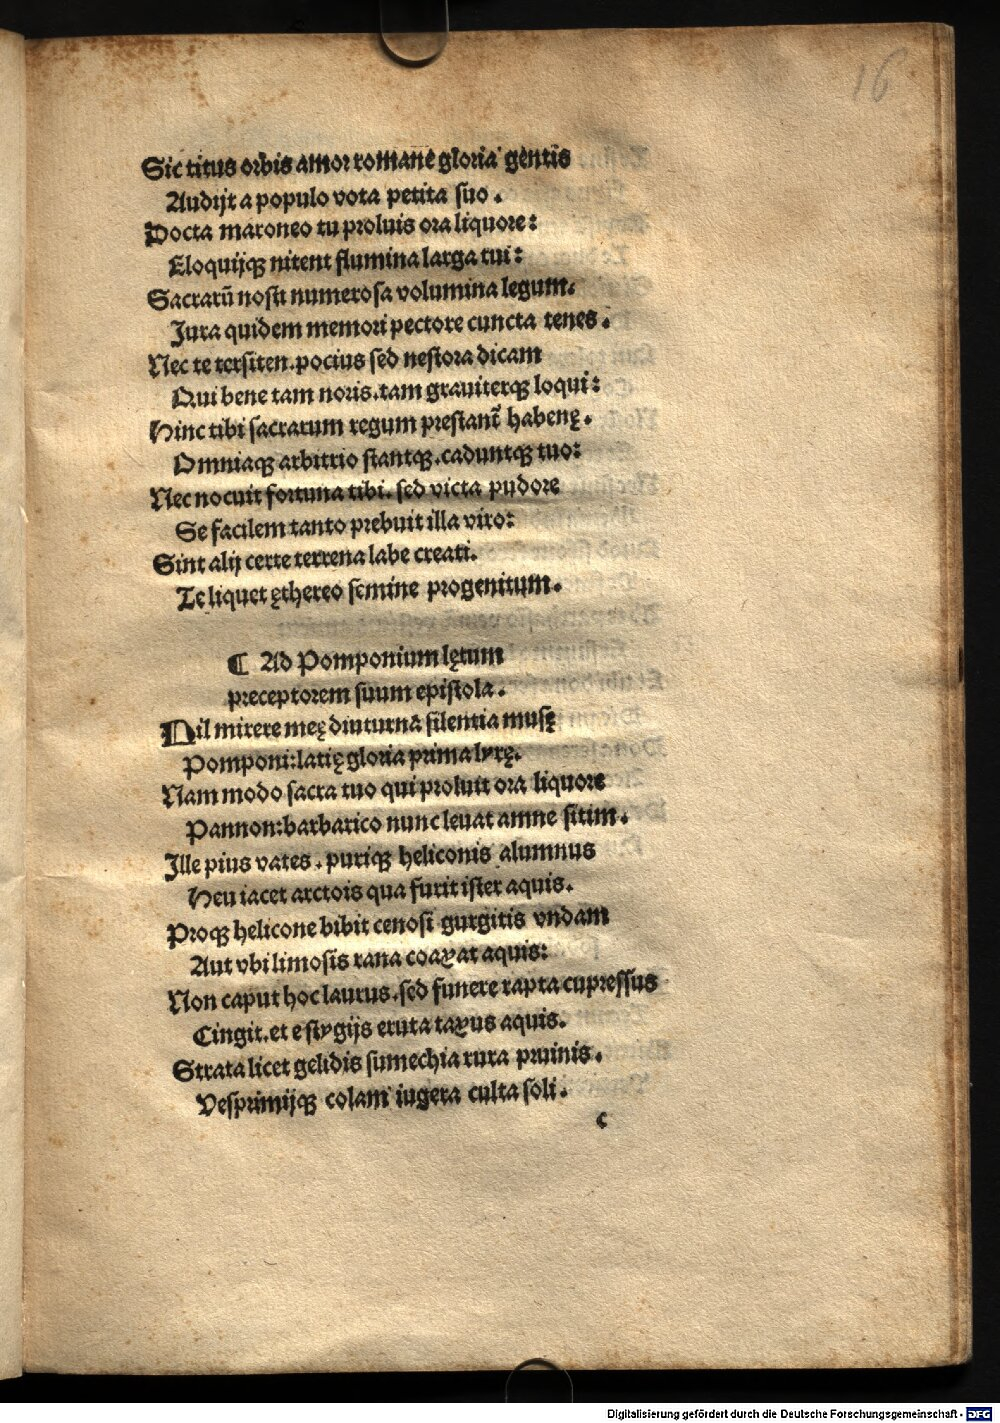 16
Sic titus orbis amor romane gloria gentis
Audijt a populo vota petita suo.
Docta maroneo tu proluis ora liquore:
Eloquijqꝫ nitent flumina larga tui:
Sacrarū nosti numerosa volumina legum.
Jura quidem memori pectore cuncta tenes.
Nec te tersiten.pocius sed nestora dicam
Qui bene tam noris.tam grauiterqꝫ loqui:
Hinc tibi sacrarum regum prestant̃ habenę.
Omniaqꝫ arbitrio stantqꝫ.caduntqꝫ tuo:
Nec nocuit fortuna tibi. sed victa pudore
Se facilem tanto prebuit illa viro:
Sint alij certe terrena labe creati.
Te liquet ęthereo semine progenitum.
¶ Ad Pomponium lętum
preceptorem suum epistola.
Nil mirere meę diuturnã silentia musę
Pomponi:latię gloria prima lyrę.
Nam modo sacra tuo qui proluit ora liquore
Pannon:barbarico nunc leuat amne sitim.
Ille pius vates. puriqꝫ heliconis alumnus
Heu iacet arctois qua furit ister aquis.
Proqꝫ helicone bibit cenosi gurgitis vndam
Aut vbi limosis rana coaxat aquis:
Non caput hoc laurus.sed funere rapta cupressus
Cingit.et e stygijs eruta taxus aquis.
Strata licet gelidis sumechia rura pruinis.
Vesprimijqꝫ colam iugera culta soli.
c
Digitalisierung gefördert durch die Deutsche Forschungsgemeinschaft - DFG